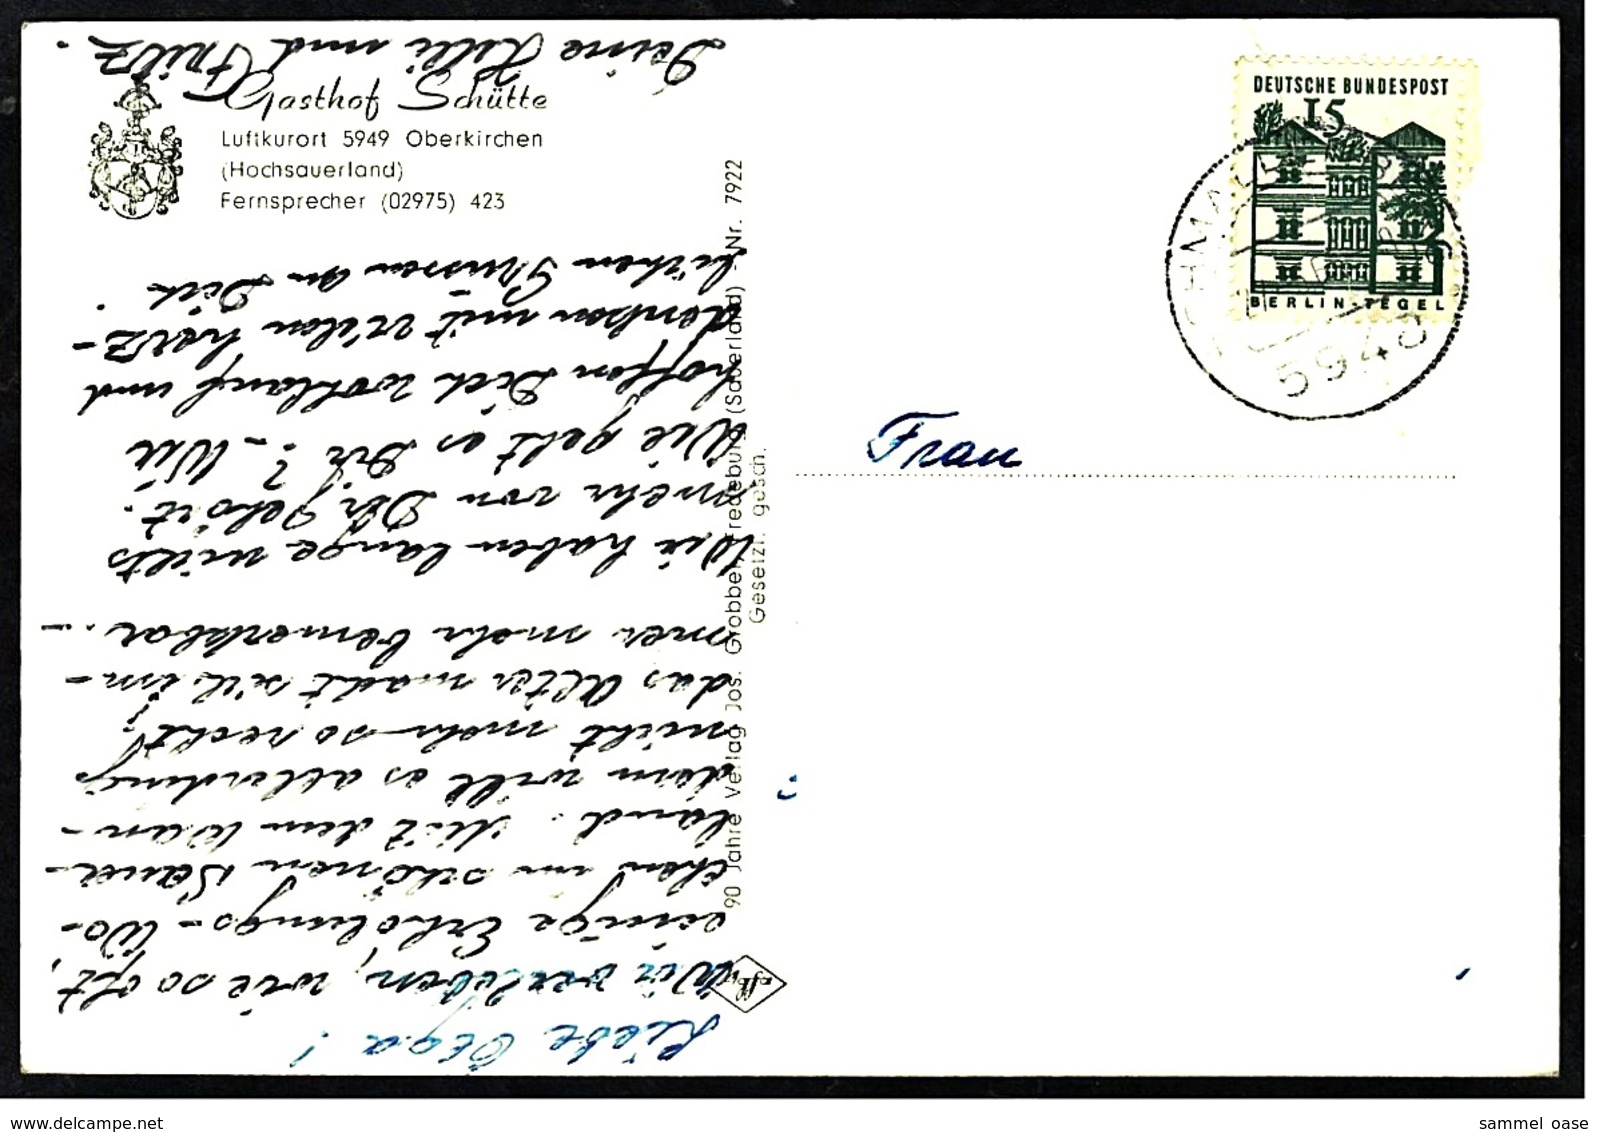 Gasthof Schütte
Luftkurort 5949 Oberkirchen
(Hochsauerland)
Fernsprecher (02975) 423
DEUTSCHE BUNDESPOST
15
BERLIN-TEGEL
5948
Frau
90 Jahre Verlag Jos. Grobbel, Fredeburg (Sauerland) - Nr. 7922
Gesetzl. gesch.
Liebe Olga!
Wir verleben, wie so oft,
einige Erholungs-Wo-
chen im schönen Sauer-
land. Mit dem Wan-
dern will es allerdings
nicht mehr so recht;
das Alter macht sich im-
mer mehr bemerkbar. -
Wir haben lange nichts
mehr von Dir gehört.
Wie geht es Dir? - Wir
hoffen Dich wohlauf und
denken mit vielen herz-
lichen Grüssen an Dich
Deine Lilli und Fritz.
sammel oase